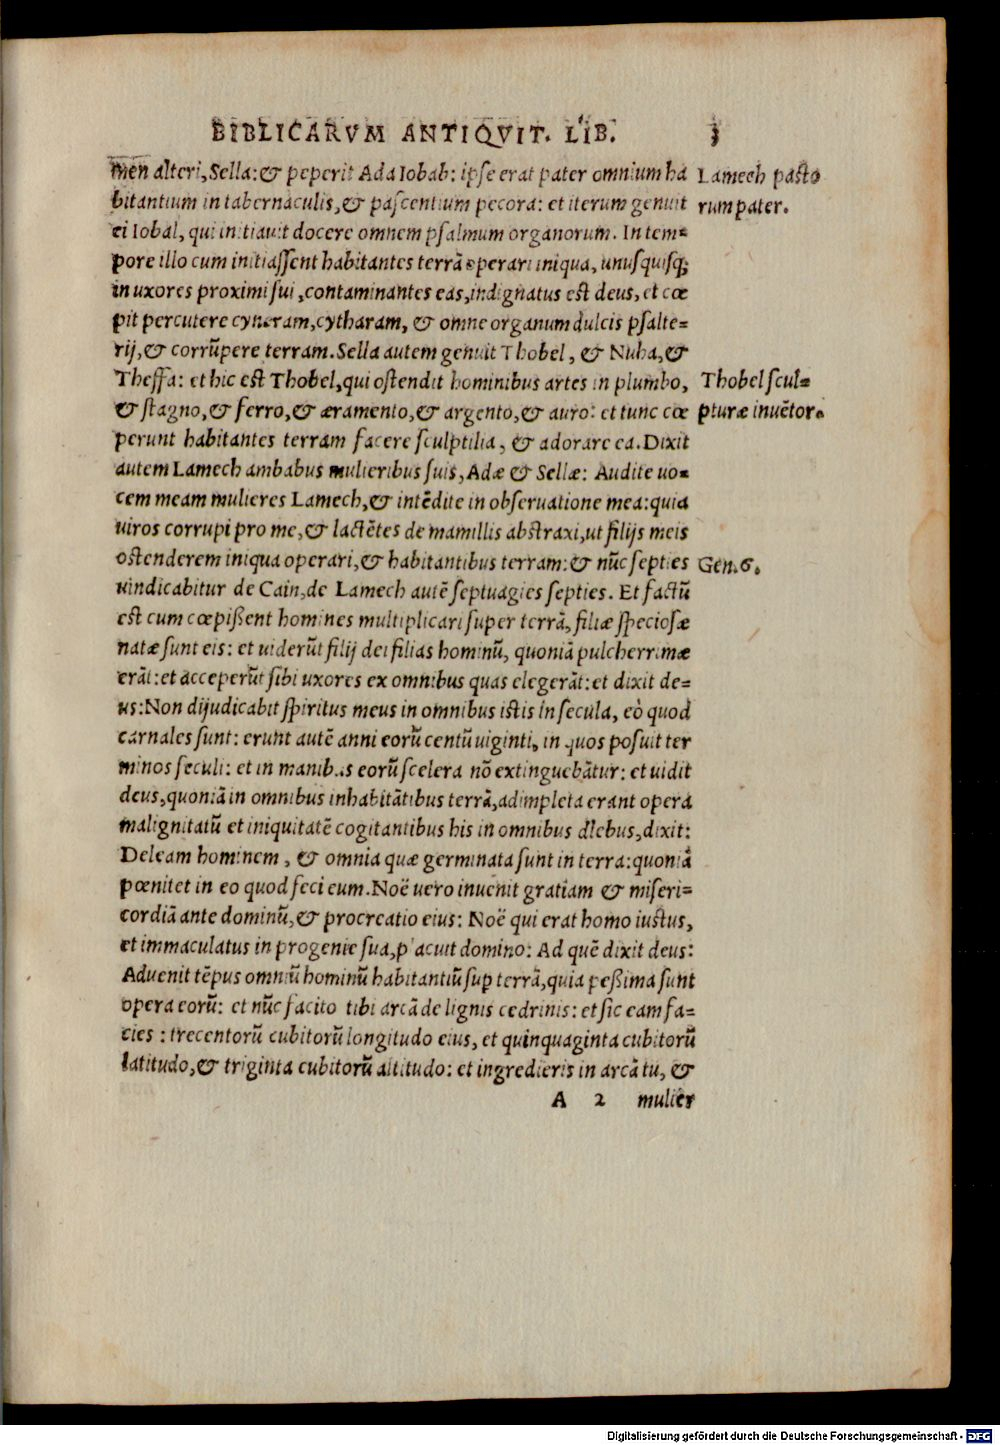 BIBLICARVM ANTIQVIT. LIB. 3
men alteri, Sella: & peperit Ada Iobab: ipse erat pater omnium ha
Lamech pasto
bitantium in tabernaculis, & pascentium pecora: et iterum genuit
rum pater.
ei Iobal, qui initiauit docere omnem psalmum organorum. In tem=
pore illo cum initiassent habitantes terrā operari iniqua, unusquisq;
in uxores proximi sui, contaminantes eas, indignatus est deus, et cœ
pit percutere cyneram, cytharam, & omne organum dulcis psalte=
rij, & corrūpere terram. Sella autem genuit Thobel, & Nuba, &
Theffa: et hic est Thobel, qui ostendit hominibus artes in plumbo,
Thobel scul=
& stagno, & ferro, & æramento, & argento, & auro: et tunc cœ
pturæ inuētor.
perunt habitantes terram facere sculptilia, & adorare ea. Dixit
autem Lamech ambabus mulieribus suis, Adæ & Sellæ: Audite uo=
cem meam mulieres Lamech, & intēdite in obseruatione mea: quia
uiros corrupi pro me, & lactētes de mamillis abstraxi, ut filijs meis
ostenderem iniqua operari, & habitantibus terram: & nūc septies
Gen. 6.
uindicabitur de Cain, de Lamech autē septuagies septies. Et factū
est cum cœpißent homines multiplicari super terrā, filiæ speciosæ
natæ sunt eis: et uiderūt filij dei filias hominū, quoniā pulcherrimæ
erāt: et acceperūt sibi uxores ex omnibus quas elegerāt: et dixit de=
us: Non dijudicabit spiritus meus in omnibus istis in secula, eò quod
carnales sunt: erunt autē anni eorū centū uiginti, in quos posuit ter
minos seculi: et in manibus eorū scelera nō extinguebātur: et uidit
deus, quoniā in omnibus inhabitātibus terrā, adimpleta erant opera
malignitatū et iniquitatē cogitantibus his in omnibus diebus, dixit:
Deleam hominem, & omnia quæ germinata sunt in terra: quoniā
pœnitet in eo quod feci eum. Noë uero inuenit gratiam & miseri=
cordiā ante dominū, & procreatio eius: Noë qui erat homo iustus,
et immaculatus in progenie sua, placuit domino: Ad quē dixit deus:
Aduenit tēpus omniū hominū habitantiū sup terrā, quia peßima sunt
opera eorū: et nūc facito tibi arcā de lignis cedrinis: et sic eam fa=
cies: trecentorū cubitorū longitudo eius, et quinquaginta cubitorū
latitudo, & triginta cubitorū altitudo: et ingredieris in arcā tu, &
A 2 mulier
Digitalisierung gefördert durch die Deutsche Forschungsgemeinschaft - DFG